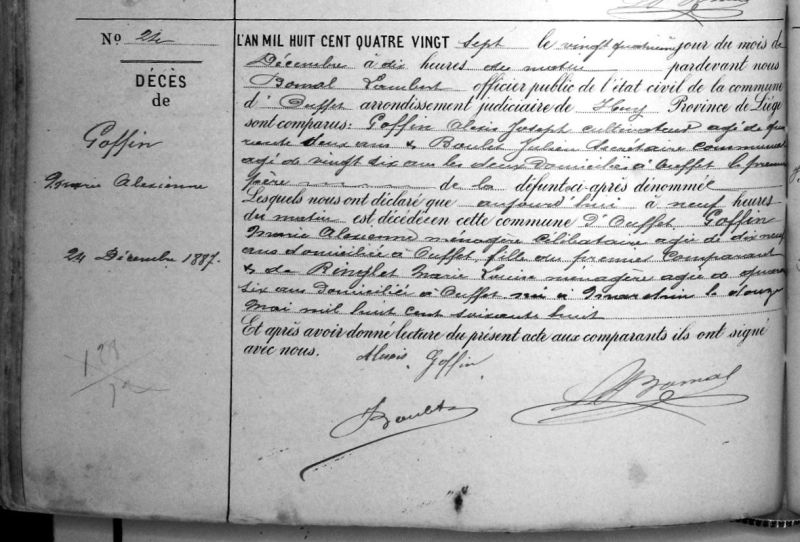 No 24
DÉCÈS
de
Goffin
Marie Alexienne
24 Décembre 1887.
128
L'AN MIL HUIT CENT QUATRE VINGT sept le vingt quatrième jour du mois de
Décembre à dix heures du matin pardevant nous
Bomal Lambert officier public de l'état civil de la commune
d' Ouffet arrondissement judiciaire de Huy Province de Liége
sont comparus: Goffin Alexis Joseph cultivateur agé de qua
rente deux ans & Boulet Julien Secrétaire communal
agé de vingt six ans les deux domiciliés à Ouffet le premier
père de la défunt ci-après dénommé
Lesquels nous ont déclaré que aujourd'hui à neuf heures
du matin est décédé en cette commune d'Ouffet Goffin
Marie Alexienne ménagère célibataire agée de dix neuf
ans domiciliée à Ouffet fille du premier Comparant
& de Ringlet Marie Louise ménagère agée de quara
six ans domiciliée à Ouffet née à le douze
Mai mil huit cent soixante huit
Et après avoir donné lecture du présent acte aux comparants ils ont signé
avec nous. Alexis Goffin
Boulet
L Bomal